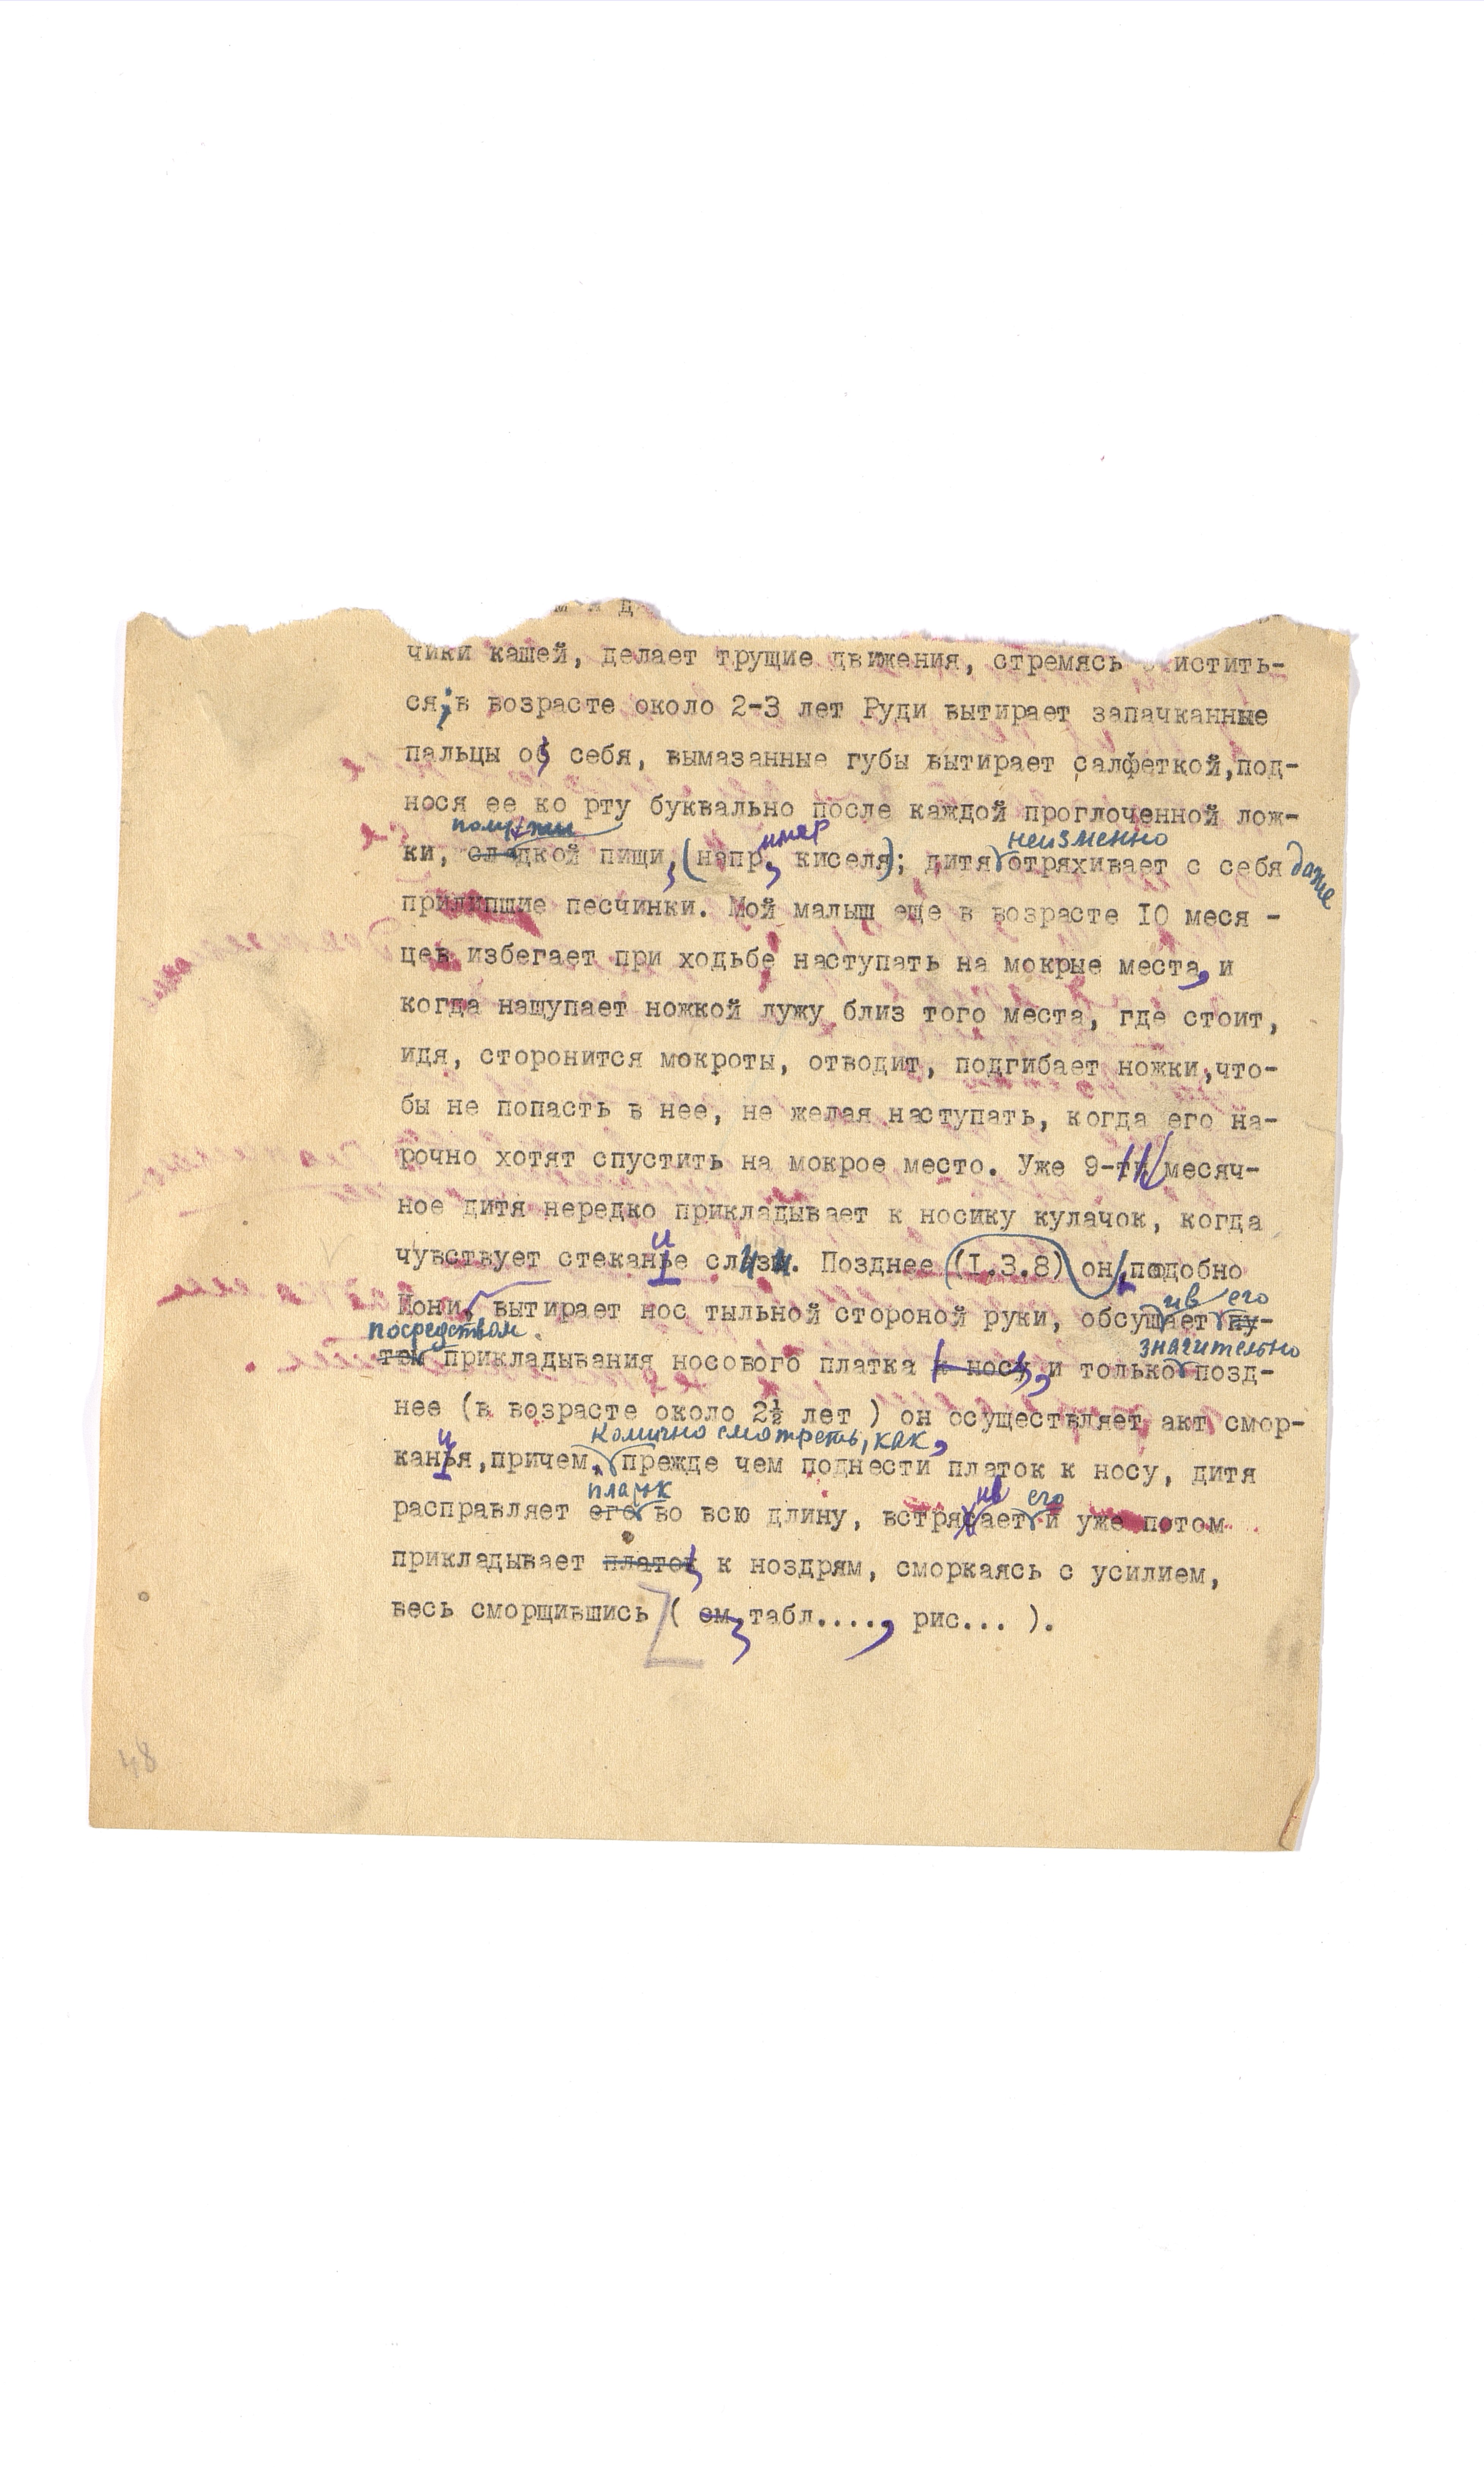 чики кашей, делает трущие движения, стремясь истить-
ся; в возрасте около 2-3 лет Руди вытирает запачканные
пальцы о себя, вымазанные губы вытирает салфеткой, под-
нося ее ко рту буквально после каждой проглоченной лож-
неизменно
ки, сладкой пищи, (например киселя); дитя отряхивает с себя даже
прилипшие песчинки. Мой малыш еще в возрасте 10 меся -
цев избегает при ходьбе наступать на мокрые места, и
когда нащупает ножкой лужу близ того места, где стоит,
идя, сторонится мокроты, отводит, подгибает ножки, что-
бы не попасть в нее, не желая наступать, когда его на-
рочно хотят спустить на мокрое место. Уже 9-ти месяч-
ное дитя нередко прикладывает к носику кулачок, когда
чувствует стекание слизи. Позднее (1.3.8) он, подобно
ив его
Иони, вытирает нос тыльной стороной руки, обсушает пу-
посредством значительно
тем прикладывания носового платка к носу, и только позд-
нее (в возрасте около 2½ лет ) он осуществляет акт смор-
комично смотреть, как,
кания, причем, прежде чем поднести платок к носу, дитя
платок ив его
расправляет его во всю длину, встрясает и уже потом
прикладывает платок к ноздрям, сморкаясь с усилием,
весь сморщившись ( см, табл...., рис... ).
48